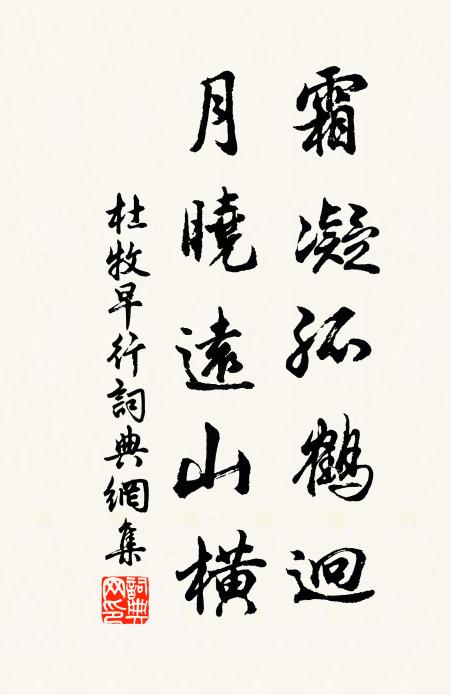 霜凝孤鶴迥
月曉遠山橫
杜牧早行詞典網集
詞典网印